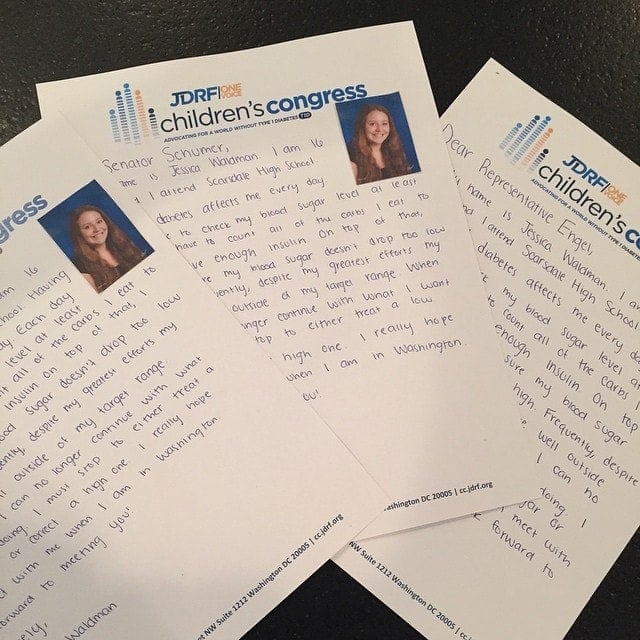 gress
am 16
school. Having
Each day
level at least
all of the carbs I eat to
insulin. On top of that, I
sugar doesn't drop too low
despite my greatest efforts my
outside of my target range.
can no longer continue with what
doing. I must stop to either treat a
or correct a high one. I really hope
with me when I am in Washington
forward to meeting you!
Waldman
NW Suite 1212 Washington DC 20005 | cc.jdrf.org
JDRF ONE VOICE
children's congress
ADVOCATING FOR A WORLD WITHOUT TYPE 1 DIABETES T1D
Senator Schumer,
name is Jessica Waldman. I am 16
I attend Scarsdale High School
diabetes affects me every day.
to check my blood sugar level at least
have to count all of the carbs I eat to
enough insulin. On top of that,
my blood sugar doesn't drop too low
despite my greatest efforts my
outside of my target range. When
longer continue with what I want
to either treat a low
high one. I really hope
when I am in Washington.
you!
Washington DC 20005 | cc.jdrf.org
JDRF ONE
children's
ADVOCATING FOR A WORLD WITHOUT TYPE 1
Dear Representative Engel,
name is Jessica Waldman. I am
and I attend Scarsdale High School
diabetes affects me every day
my blood sugar level
to count all of the carbs
enough insulin. On top
sure my blood sugar
high. Frequently, despite
well outside
I can no
doing. I
or
meet with
forward to
NW Suite 1212 Washington DC 20005 | cc.jdrf.org